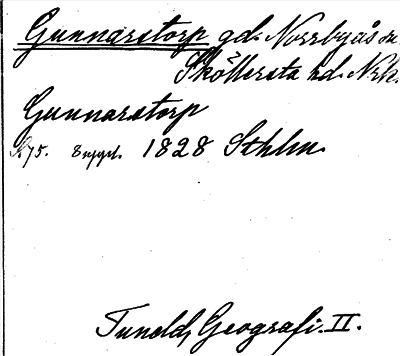 Gunnarstorp gd. Norrbyås sn.
Sköllersta hd. Nrk.
Gunnarstorp
S. 75. 8 uppl. 1828 Sthlm.
Tuneld, Geografi. II.